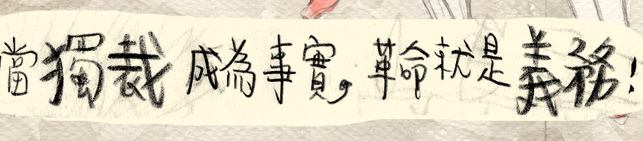 當獨裁成為事實，革命就是義務！